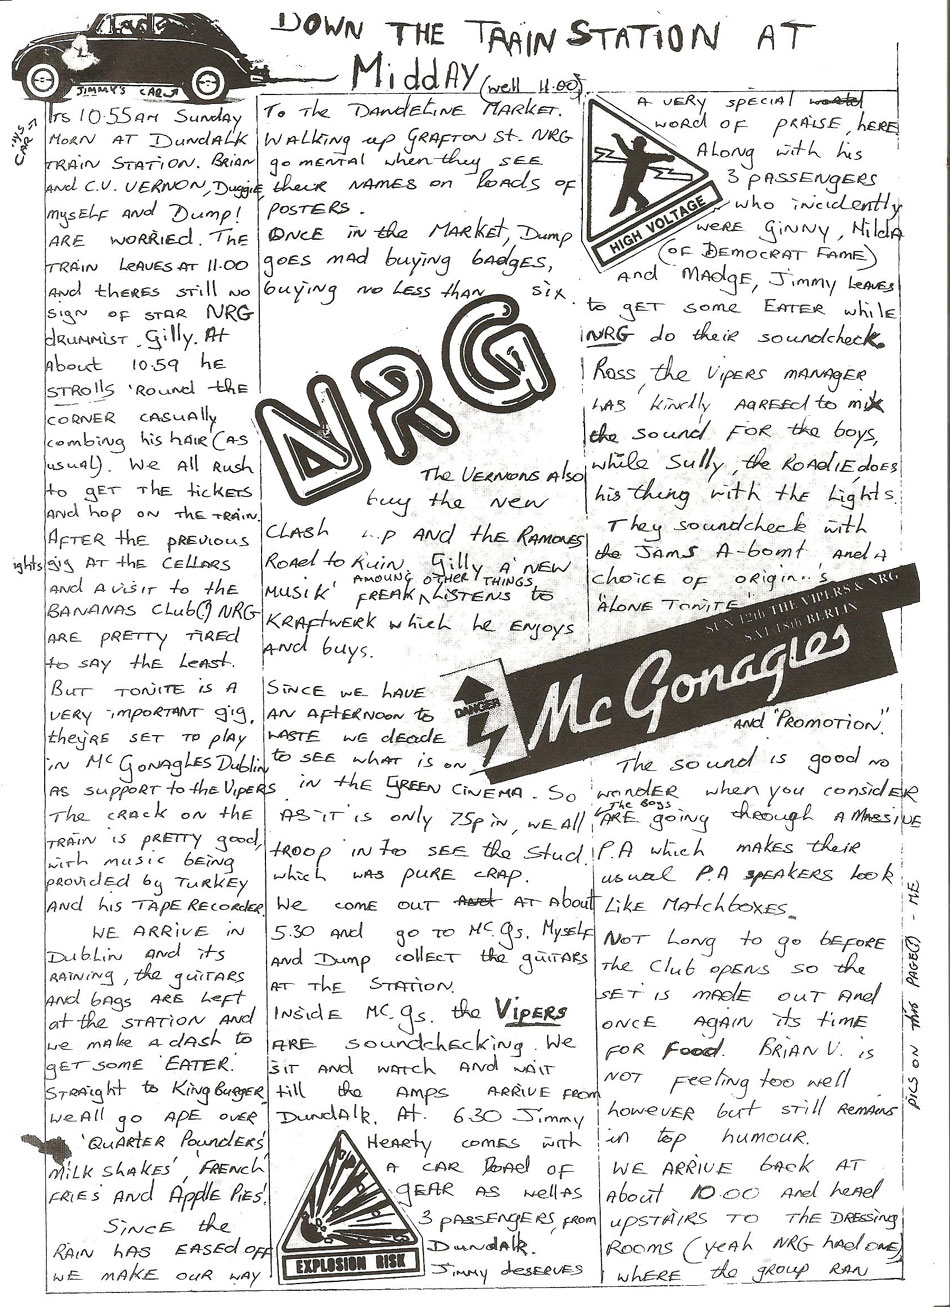 DOWN THE TRAIN STATION AT
MIDDAY (well 11.00)
JIMMY'S CAR
"JY'S CAR"
Its 10.55AM SUNDAY
MORN AT DUNDALK
TRAIN STATION. BRIAN
AND C.U. VERNON, Duggie,
mySELF AND DUMP!
ARE WORRIED. THE
TRAIN LEAVES AT 11.00
AND THERES STILL NO
SIGN OF STAR NRG
dRUMMIST, Gilly. AT
About 10.59 HE
STROLLS 'ROUND THE
CORNER CASUALLY
combing his HAIR (AS
usual). We ALL RUSH
to GET THE tickets
AND hop ON THE TRAIN.
AFTER the PREVIOUS
ights gig AT the CELLARS
AND A VISIT to the
BANANAS Club(!) NRG
ARE PRETTY TIRED
to SAY the LEAST.
BUT TONITE IS A
VERY IMPORTANT gig,
they're SET TO PLAY
IN MC GONAGLES Dublin
AS SUPPORT to the VIPERS
THE CRACK ON the
TRAIN is PRETTY good,
with music being
provided by TURKEY
AND his TAPE RECORDER.
WE ARRIVE IN
DUBLIN AND its
RAINING, the guitars
AND bags ARE LEFT
at the STATION AND
we make A dASH to
get SOME 'EATER'.
STRAIGHT to King Burger,
we ALL go APE OVER
'QUARTER POUNDERS'
MILK SHAKES', 'FRENCH
FRIES' AND Apple Pies'.
SINCE the
RAIN HAS EASED OFF
WE MAKE OUR WAY
To the DANDELINE MARKET.
WALKING up GRAFTON St. NRG
go MENTAL when they SEE
their NAMES ON LOADS OF
POSTERS.
ONCE IN the MARKET, Dump
goes mad buying badges,
buying no LESS than six.
NRG
The VERNONS Also
buy the new
CLASH L.P AND the RAMONES
Road to Ruin. Gilly A 'NEW
MUSIK' FREAK, AMOUNG OTHER THINGS LISTENS to
KRAFTWERK which he ENJOYS
AND buys.
SINCE WE HAVE
AN AFTERNOON to
WASTE WE decide
to SEE WHAT is ON
IN the GREEN CINEMA. So
AS IT is only 75p in, WE ALL
troop in to SEE the Stud.
which WAS PURE CRAP.
We come OUT AT About
5.30 AND go TO MC.Gs. MYSELF
AND DUMP collect the guitars
AT the STATION.
INSIDE MC.Gs. the VIPERS
ARE SOUNDCHECKING. We
SIT AND WATCH AND WAIT
till the AMPS ARRIVE FROM
DUNDALK. At 6.30 Jimmy
HEARTY comes with
A CAR LOAD OF
GEAR AS well AS
3 PASSENGERS, from
DUNDALK.
Jimmy deserves
EXPLOSION RISK
A VERY SPECIAL
WORD OF PRAISE, HERE.
Along with his
3 PASSENGERS
who incidently
WERE GINNY, Nilda
(OF DEMOCRAT FAME)
AND MADGE, Jimmy LEAVES
to GET some EATER while
NRG do their soundcheck.
Ross, the VIPERS MANAGER
HAS kindly AGREED to mix
the sound FOR the boys,
while Sully, the ROADIE, does
his thing with the Lights.
They soundcheck with
the JAMS A-bomb AND A
choice OF origin..'s
'ALONE TONITE'
AND "PROMOTION".
HIGH VOLTAGE
SUN 12th THE VIPERS & NRG
SAT 18th BERLIN
Mc Gonagles
DANGER
The sound is good no
wonder when you consider
The Boys
ARE going through A MASSIVE
P.A which MAKES their
usual P.A SPEAKERS LOOK
LIKE MATCHBOXES.
NOT LONG to go BEFORE
The Club OPENS so the
SET IS MADE OUT AND
ONCE AGAIN its time
FOR Food. BRIAN V. is
NOT FEELING too well
however but still REMAINS
in top humour.
WE ARRIVE back AT
About 10.00 AND head
UPSTAIRS TO THE DRESSING
ROOMS (yeah NRG had one)
WHERE the group RAN
PICS ON THIS PAGE(?) - ME